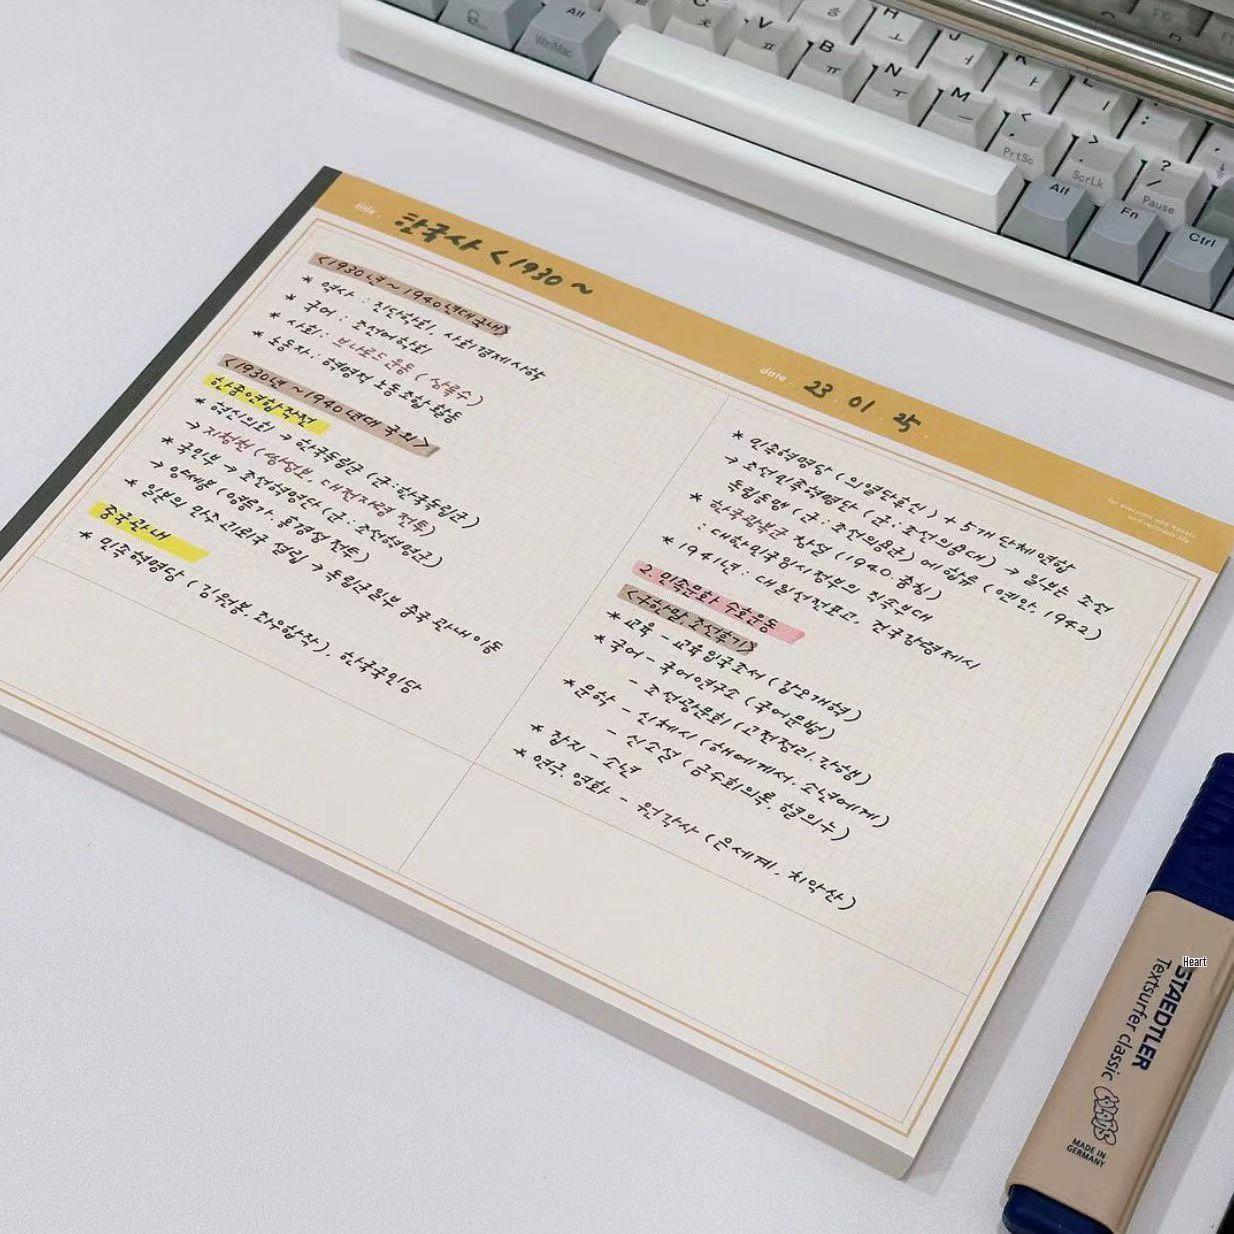 title.
한국사 < 1930 ~
date.
23. 01. 25.
for everyone who travels
and records life
<1930년 ~ 1940년대 국내>
* 역사 : 진단학회, 사회경제사학
* 국어 : 조선어학회
* 사회 : 브나로드운동 (상록수)
* 노동자 : 혁명적 노동조합 활동
<1930년 ~ 1940년대 국외>
한중연합작전
* 혁신의회 → 한국독립군 (군:한국독립군)
→ 지청천 (쌍성보, 대전자령 전투)
* 국민부 → 조선혁명단 (군:조선혁명군)
→ 양세봉 (영릉가, 흥경성 전투)
* 일본의 만주 괴뢰국 설립 → 독립군일부 중국관내이동
중국관내
* 민족혁명당 (김원봉, 좌우합작), 한국국민당
* 민족혁명당 (의열단후신) + 5개 단체 연합
→ 조선민족혁명단 (군:조선의용대) → 일부는 조선
독립동맹 (군:조선의용군)에 합류 (연안, 1942)
* 한국광복군 창설 (1940. 충칭)
: 대한민국임시정부의 직속부대
* 1941년 : 대일선전포고, 건국강령제시
2. 민족문화 수호운동
<구한말 조선후기>
* 교육 - 교육입국조서 (갑오개혁)
* 국어 - 국어연구소 (국어문법)
- 조선광문회 (고전정리, 간행)
* 문학 - 신체시 (해에게서 소년에게)
- 신소설 (금수회의록, 혈의누)
* 잡지 - 소년
* 연극, 영화 - 원각사 (은세계, 치악산)
Alt
Win/Mac
C ㅊ
V ㅍ
B ㅠ
N ㅜ
M ㅡ
ㅎ
H ㅗ
J ㅓ
K ㅏ
L ㅣ
< , PrtSc
> . ScrLk
? / Pause
Alt
Fn
Ctrl
Heart
STAEDTLER
Textsurfer classic
COLORS
MADE IN
GERMANY